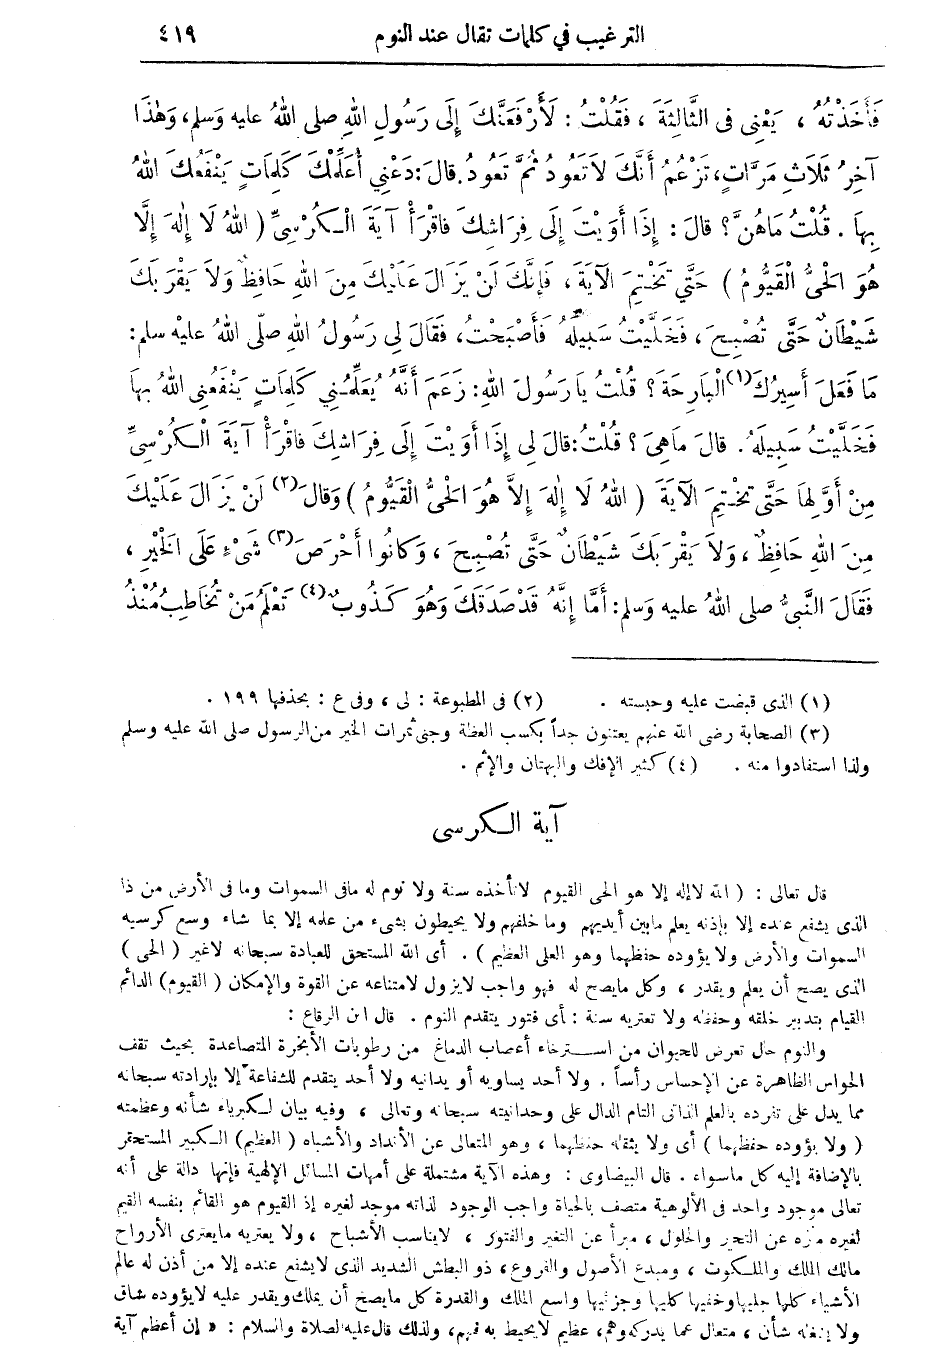 الترغيب في كلمات تقال عند النوم ٤١٩
فَأَخَذْتُهُ ، يَعْنِى فى الثَّالِثَةَ ، فَقُلْتُ : لَأَرْفَعَنَّكَ إِلَى رَسُولِ اللهِ صلى اللهُ عليه وَسلم، وَهٰذَا
آخِرُ ثَلَاثِ مَرَّاتٍ، تَزْعُمُ أَنَّكَ لَا تَعُودُ ثُمَّ تَعُودُ. قالَ: دَعْنِي أُعَلِّمْكَ كَلِمَاتٍ يَنْفَعُكَ اللهُ
بِهَا . قُلْتُ مَاهُنَّ؟ قالَ : إِذَا أَوَيْتَ إِلَى فِرَاشِكَ فاقْرَأْ آيَةَ الْكُرْسِىِّ ( اللهُ لَا إِلٰهَ إِلَّا
هُوَ الْحَىُّ الْقَيُّومُ ) حَتَّى تَخْتِمَ الْآيَةَ ، فَإِنَّكَ لَنْ يَزَالَ عَلَيْكَ مِنَ اللهِ حَافِظٌ وَلَا يَقْرَبُكَ
شَيْطَانٌ حَتَّى تُصْبِحَ ، فَخَلَّيْتُ سَبِيلَهُ فَأَصْبَحْتُ، فَقَالَ لِي رَسُولُ اللهِ صلّى اللهُ عليْه سلم:
مَا فَعَلَ أَسِيرُكَ (١) الْبَارِحَةَ؟ قُلْتُ يَا رَسُولَ اللهِ: زَعَمَ أَنَّهُ يُعَلِّمُنِي كَلِمَاتٍ يَنْفَعُنِى اللهُ بِهَا
فَخَلَّيْتُ سَبِيلَهُ. قالَ مَاهِىَ؟ قُلْتُ: قالَ لِي إِذَا أَوَيْتَ إِلَى فِرَاشِكَ فاقْرَأْ آيَةَ الْكُرْسِىِّ
مِنْ أَوَّلِهَا حَتَّى تَخْتِمَ الْآيَةَ ( اللهُ لَا إِلٰهَ إِلَّا هُوَ الْحَىُّ الْقَيُّومُ ) وَقالَ (٢) لَنْ يَزَالَ عَلَيْكَ
مِنَ اللهِ حَافِظٌ، وَلَا يَقْرَبَكَ شَيْطَانٌ حَتَّى تُصْبِحَ ، وَكَانُوا أَحْرَصَ (٣) شَىْءٍ عَلَى الْخَيْرِ ،
فَقَالَ النَّبِىُّ صلى اللهُ عليه وَسلم: أَمَّا إِنَّهُ قَدْ صَدَقَكَ وَهُوَ كَذُوبٌ (٤) تَعْلَمُ مَنْ تُخَاطِبُ مُنْذُ
(١) الذى قبضت عليه وحبسته . (٢) فى المطبوعة : لى ، وفى ع : بحذفها ١٩٩ .
(٣) الصحابة رضى الله عنهم يعتنون جداً بكسب العظة وجنى ثمرات الخير من الرسول صلى الله عليه وسلم
ولذا استفادوا منه . (٤) كثير الإفك والبهتان والإثم .
آية الكرسى
قال تعالى : ( الله لا إله إلا هو الحى القيوم لا تأخذه سنة ولا نوم له مافى السموات وما فى الأرض من ذا
الذى يشفع عنده إلا بإذنه يعلم مابين أيديهم وما خلفهم ولا يحيطون بشىء من علمه إلا بما شاء وسع كرسيه
السموات والأرض ولا يؤوده حفظهما وهو العلى العظيم ) . أى الله المستحق للعبادة سبحانه لاغير ( الحى )
الذى يصح أن يعلم ويقدر ، وكل مايصح له فهو واجب لايزول لامتناعه عن القوة والإمكان ( القيوم) الدائم
القيام بتدبير خلقه وحفظه ولا تعتريه سنة : أى فتور يتقدم النوم . قال ابن الرقاع :
والنوم حال تعرض للحيوان من استرخاء أعصاب الدماغ من رطوبات الأبخرة المتصاعدة بحيث تقف
الحواس الظاهرة عن الإحساس رأساً . ولا أحد يساويه أو يدانيه ولا أحد يتقدم للشفاعة إلا بإرادته سبحانه
مما يدل على تفرده بالعلم الذاتى التام الدال على وحدانيته سبحانه وتعالى ، وفيه بيان لكبرياء شأنه وعظمته
( ولا يؤوده حفظهما ) أى ولا يثقله حفظهما ، وهو المتعالى عن الأنداد والأشباه ( العظيم) الكبير المستحقر
بالإضافة إليه كل ماسواه . قال البيضاوى : وهذه الآية مشتملة على أمهات المسائل الإلهية فإنها دالة على أنه
تعالى موجود واحد فى الألوهية متصف بالحياة واجب الوجود لذاته موجد لغيره إذ القيوم هو القائم بنفسه القيم
لغيره منزه عن التحيز والحلول ، مبرأ عن التغير والفتور ، لايناسب الأشباح ، ولا يعتريه مايعترى الأرواح
مالك الملك والملكوت ، ومبدع الأصول والفروع، ذو البطش الشديد الذى لايشفع عنده إلا من أذن له عالم
الأشياء كلها جليها وخفيها كليها وجزئيها واسع الملك والقدرة كل مايصح أن يملك ويقدر عليه لايؤوده شاق
ولا يشغله شأن ، متعال عما يدركه وهم، عظيم لايحيط به فهم، ولذلك قال عليه الصلاة والسلام : « إن أعظم آية